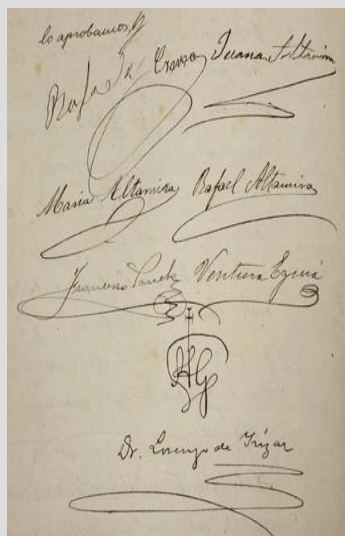 lo aprobamos, y
Rafael Juana Altamira
María Altamira Rafael Altamira
Francisco Ventura
Dr. Lorenzo de Irízar